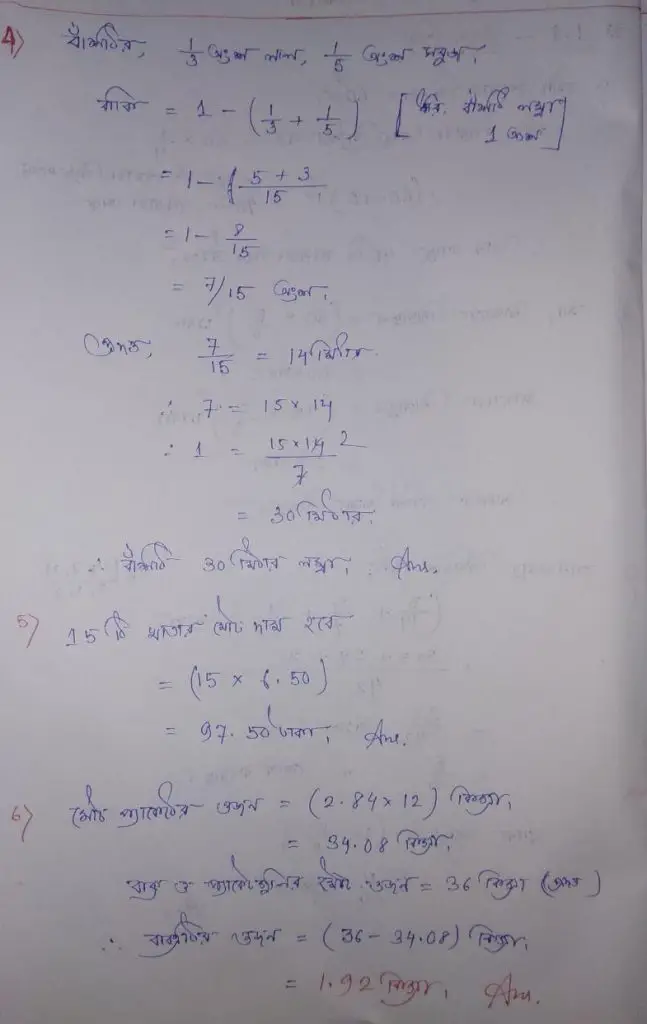 4) বাঁশটির, 1/3 অংশ লাল, 1/5 অংশ সবুজ।
বাকি = 1 - (1/3 + 1/5) [ধরি, বাঁশটি লম্বা 1 অংশ]
= 1 - (5 + 3)/15
= 1 - 8/15
= 7/15 অংশ।
প্রদত্ত, 7/15 = 14 মিটার
∴ 7 = 15 x 14
∴ 1 = (15 x 14)/7 2
= 30 মিটার।
∴ বাঁশটি 30 মিটার লম্বা। Ans.
5) 15 টি খাতার মোট দাম হবে
= (15 x 6.50)
= 97.50 টাকা। Ans.
6) মোট প্যাকেটের ওজন = (2.84 x 12) কিগ্রা।
= 34.08 কিগ্রা।
বাক্স ও প্যাকেটগুলির মোট ওজন = 36 কিগ্রা (প্রদত্ত)
∴ বাক্সটির ওজন = (36 - 34.08) কিগ্রা।
= 1.92 কিগ্রা। Ans.